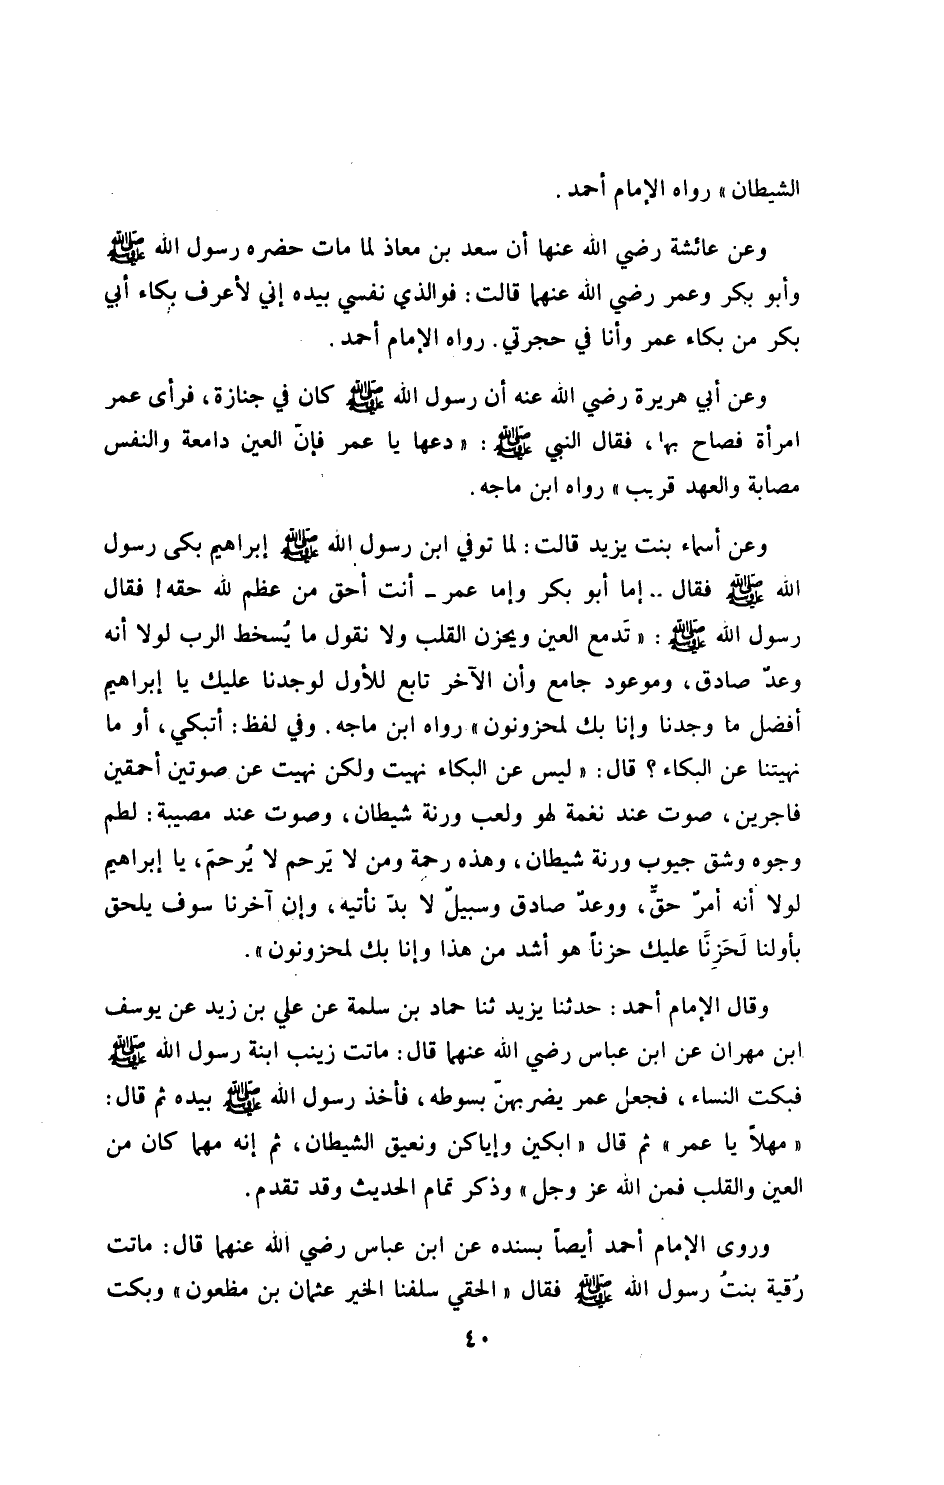 الشيطان » رواه الإمام أحمد .
وعن عائشة رضي الله عنها أن سعد بن معاذ لما مات حضره رسول الله ﷺ
وأبو بكر وعمر رضي الله عنهما قالت : فوالذي نفسي بيده إني لأعرف بكاء أبي
بكر من بكاء عمر وأنا في حجرتي . رواه الإمام أحمد .
وعن أبي هريرة رضي الله عنه أن رسول الله ﷺ كان في جنازة ، فرأى عمر
امرأة فصاح بها ، فقال النبي ﷺ : « دعها يا عمر فإنّ العين دامعة والنفس
مصابة والعهد قريب » رواه ابن ماجه .
وعن أسماء بنت يزيد قالت : لما توفي ابن رسول الله ﷺ إبراهيم بكى رسول
الله ﷺ فقال .. إما أبو بكر وإما عمر ـ أنت أحق من عظم لله حقه ! فقال
رسول الله ﷺ : « تَدمع العين ويحزن القلب ولا نقول ما يُسخط الرب لولا أنه
وعدٌ صادق ، وموعود جامع وأن الآخر تابع للأول لوجدنا عليك يا إبراهيم
أفضل ما وجدنا وإنا بك لمحزونون » رواه ابن ماجه . وفي لفظ : أتبكي ، أو ما
نهيتنا عن البكاء ؟ قال : « ليس عن البكاء نهيت ولكن نهيت عن صوتين أحمقين
فاجرين ، صوت عند نغمة لهو ولعب ورنة شيطان ، وصوت عند مصيبة : لطم
وجوه وشق جيوب ورنة شيطان ، وهذه رحمة ومن لا يَرحم لا يُرحمَ ، يا إبراهيم
لولا أنه أمرٌ حقٌّ ، ووعدٌ صادق وسبيلٌ لا بدّ نأتيه ، وإن آخرنا سوف يلحق
بأولنا لَحَزِنَّا عليك حزناً هو أشد من هذا وإنا بك لمحزونون » .
وقال الإمام أحمد : حدثنا يزيد ثنا حماد بن سلمة عن علي بن زيد عن يوسف
ابن مهران عن ابن عباس رضي الله عنهما قال : ماتت زينب ابنة رسول الله ﷺ
فبكت النساء ، فجعل عمر يضربهنّ بسوطه ، فأخذ رسول الله ﷺ بيده ثم قال :
« مهلاً يا عمر » ثم قال « ابكين وإياكن ونعيق الشيطان ، ثم إنه مهما كان من
العين والقلب فمن الله عز وجل » وذكر تمام الحديث وقد تقدم .
وروى الإمام أحمد أيصاً بسنده عن ابن عباس رضي الله عنهما قال : ماتت
رُقية بنتُ رسول الله ﷺ فقال « الحقي سلفنا الخير عثمان بن مظعون » وبكت
٤٠